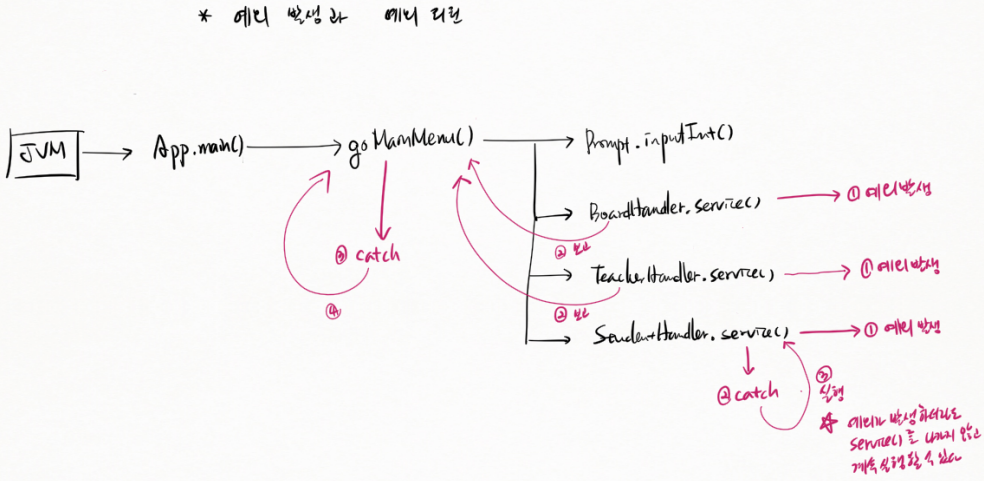 * 에러 발생과 에러 리턴
JVM
App.main()
goMainMenu()
Prompt.inputInt()
BoardHandler.service()
① 에러 발생
② 보고
③ catch
TeacherHandler.service()
① 에러 발생
② 보고
④
StudentHandler.service()
① 에러 발생
② catch
③
실행
☆ 에러가 발생하더라도
service()를 나가지 않고
계속 실행할 수 있다